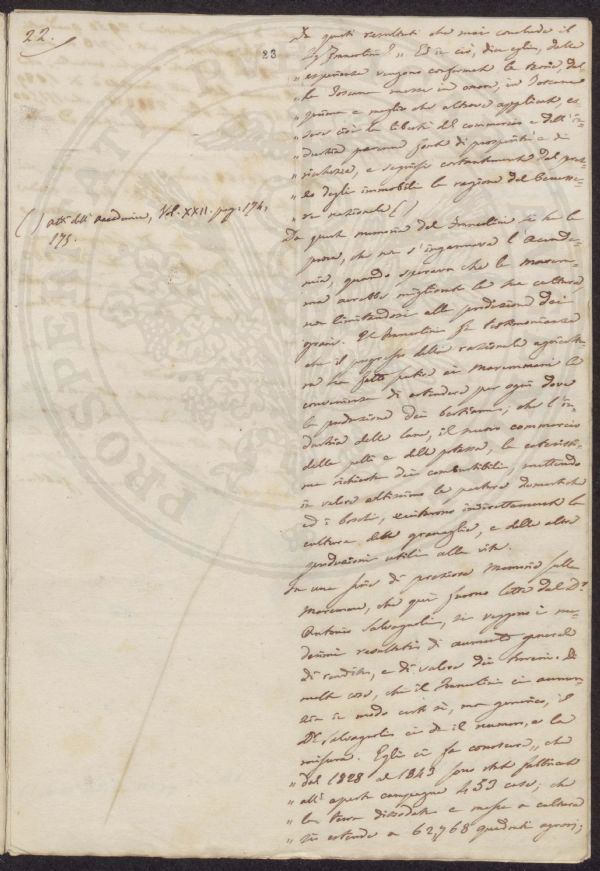 22.
23
Da questi resultati che mai conclude il
Sig. Innocenti? „ Ed in ciò, dice egli, dalle
„ esperienze vengono confermate le teorie, dal-
„ la Toscana messe in onore, in Toscana
„ prima e meglio che altrove applicate, es-
„ sere cioè la libertà del commercio e dell'in-
„ dustria perenne fonte di prosperità e di
„ ricchezza, e seguire costantemente del prez-
„ zo degli immobili la ragione del benesse-
„ re nazionale ( )
( ) Atti dell'Accademia, Vol. XXII. pag. 174,
175.
Da questa memoria del si ha la
prova, che non s'ingannava l'Accade-
mia, quando sperava che la Marem-
ma avrebbe migliorato la sua cultura
non limitandosi alla produzione dei
grani. Il fa testimonianza
che il progresso della razionale agricoltu-
ra ha fatto palese ai Maremmani la
convenienza di estendere per ogni dove
la produzione dei bestiami; che l'in-
dustria delle lane, il nuovo commercio
delle pelli e della potassa, le
me richieste dei combustibili, mettendo
in valore altissimo le pasture domestiche
ed i boschi, indirettamente la
cultura delle granaglie, e delle altre
produzioni utili alla vita.
In una serie di preziose Memorie sulle
Maremme, che qui furono lette dal D.r
Antonio Salvagnoli, si veggono i me-
desimi resultati di aumento generale
di rendita, e di valore dei terreni. Di
molte cose, che il ci annun-
zia in modo certo sì, ma generico, il
D.r Salvagnoli ci dà il numero, e la
misura. Egli ci fa conoscere „ che
„ dal 1828 al 1843 sono state fabbricate
„ all'aperta campagna 453 case; che
„ la terra dissodata e messa a cultura
„ si estende a 62,768 quadrati agrari;